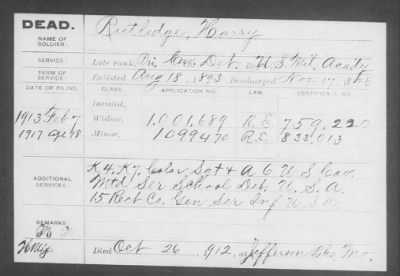 DEAD.
NAME OF SOLDIER: Rutledge, Harry
SERVICE: Late rank, Pri Cav. Det. U.S. Mil. Acad'y
TERM OF SERVICE: Enlisted Aug 18, 1893 Discharged Nov. 17,
DATE OF FILING. CLASS. APPLICATION NO. LAW. CERTIFICATE NO.
Invalid,
1913 Feb 7 Widow, 1,001,689 R.E. 759,220
1917 18 Minor, 1099470 R.E. 833,013
ADDITIONAL SERVICES: K 4, K 7, Color Sgt & A 6 U S Cav.
Mtd Ser School Det. U. S. A.
15 Rect Co. Gen Ser Inf U S A
REMARKS:
Died Oct 26, 1912, at Jefferson Bks Mo.